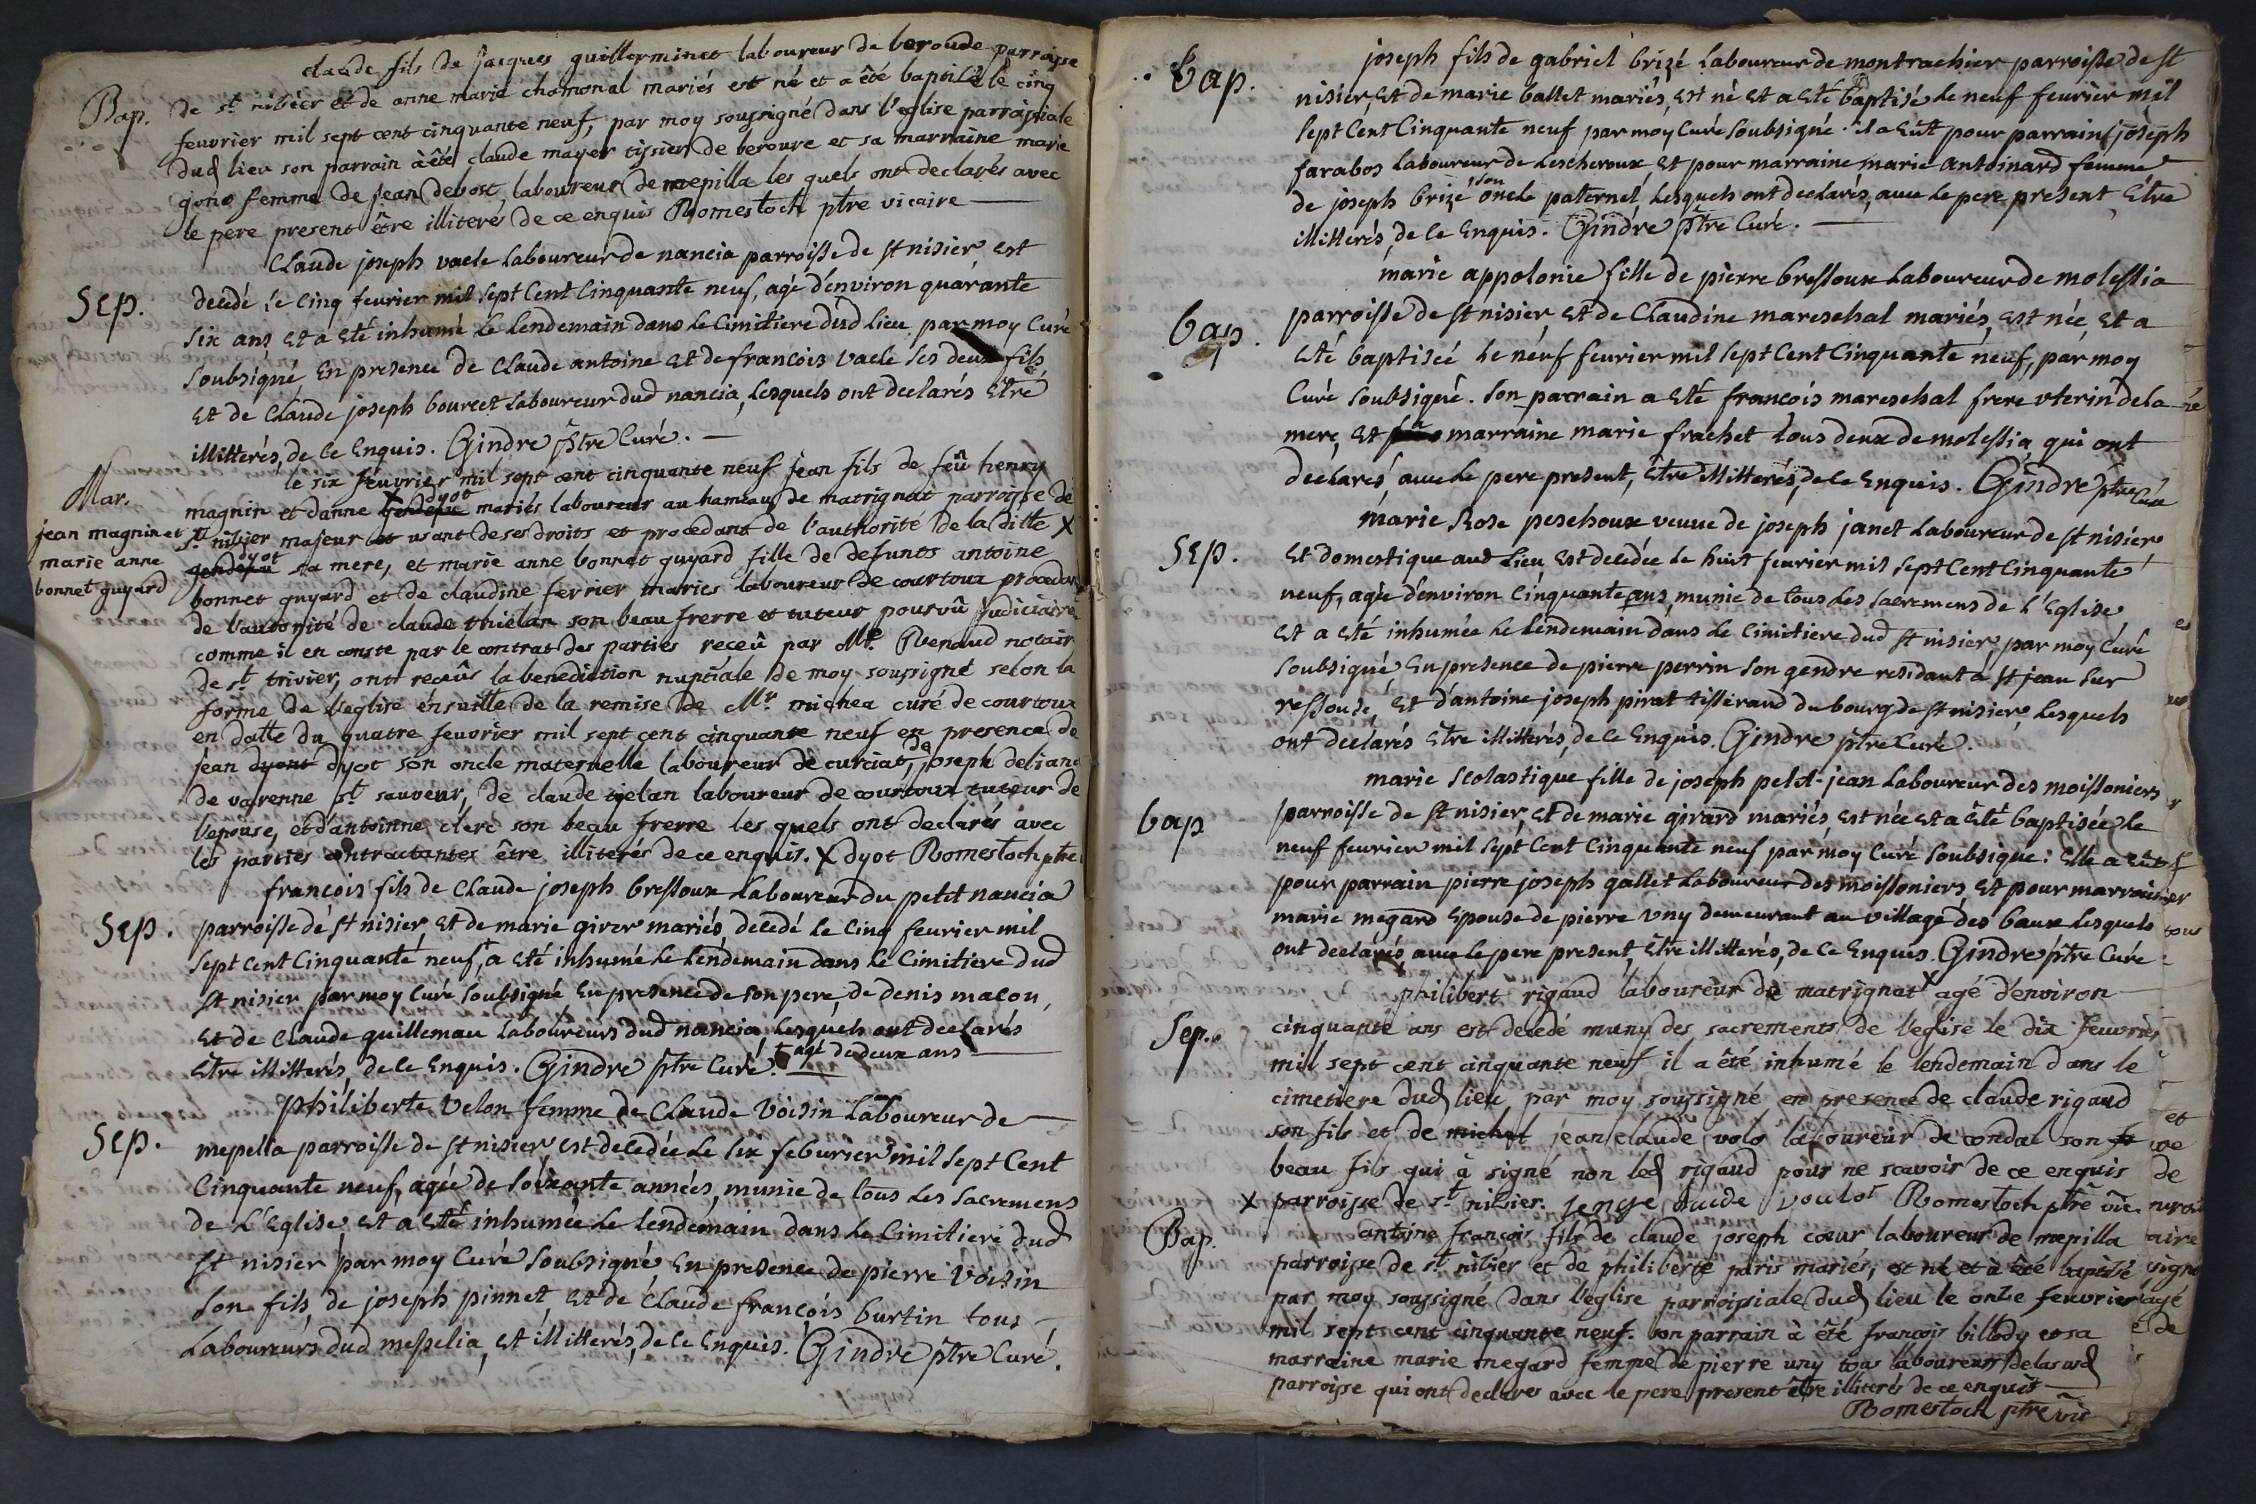 claude fils de jacques guillerminet laboureur de beroude parroisse
Bap. de st nisier et de anne marie chamonal mariés est né et a été baptisé le cinq
feuvrier mil sept cent cinquante neuf, par moy soussigné dans l'eglise parroissiale
dud lieu son parrain à été claude mayer tissier de beroure et sa marraine marie
gono femme de jean debost laboureur de mepilla les quels ont declarés avec
le pere present être illiterés de ce enquis Romestoch ptre vicaire
Claude joseph vacle Laboureur de nancia parroisse de st nisier, Est
Sep. decedé le Cinq feurier mil sept Cent Cinquante neuf, agé d'environ quarante
six ans, Et a Eté inhumé le lendemain dans le Cimitiere dud lieu, par moy Curé
soubsigné En presence de Claude antoine Et de francois vacle ses deux fils
Et de Claude joseph bourcet Laboureur dud nancia, Lesquels ont declarés Etre
illitterés, de Ce Enquis. Gindre ptre Curé.
Mar. le six feuvrier mil sept cent cinquante neuf jean fils de feû henry
magnin et danne gendepu dyot mariés laboureur au hameau de matrignat parroisse de
jean magnin et st nisier majeur et usant de ses droits et procedant de l'authorité de la ditte X
marie anne gendepu dyot sa mere, et marie anne bonnet guyard fille de defunts antoine
bonnet guyard bonnet guyard et de claudine ferrier mariés laboureur de courtoux procedan
de l'autorité de claude thiélan son beau frerre et tuteur pourvû judiciaire
comme il en conste par le contrat des parties receû par Mr. Renaud notair
de st trivier, ont reçûs la benediction nuptiale de moy soussigné selon la
forme de l'eglise ensuitte de la remise de Mr. michea curé de courtoux
en datte du quatre feuvrier mil sept cent cinquante neuf en presence de
jean dyont dyot son oncle maternelle laboureur de curciat, de joseph deliane
de varenne st sauveur, de claude tielan laboureur de courtoux tuteur de
l'epouse, et d'antoinne clerc son beau frerre les quels ont declarés avec
les parties contractantes être illiterés de ce enquis. X dyot Romestoch ptre
francois fils de Claude joseph bressoux Laboureur du petit nancia
Sep. parroisse de st nisier, Et de marie girer mariés, decedé le Cinq feurier mil
sept Cent Cinquante neuf, † a Eté inhumé le lendemain dans le Cimitiere dud
st nisier par moy Curé soubsigné En presence de son pere, de denis macon,
Et de Claude guillemau Laboureurs dud nancia, Lesquels ont declarés
Etre illitterés, de Ce Enquis. Gindre ptre Curé. † agé de deux ans
philiberte velon femme de Claude Voisin Laboureur de
Sep. mepella parroisse de st nisier, Est decedée le six feburier mil sept Cent
Cinquante neuf, agée de soixante années, munie de tous les sacremens
de L'Eglise, Et a Eté inhumée le lendemain dans le Cimitiere dud
st nisier par moy Curé soubsigné En presence de pierre Voisin
son fils, de joseph pinnet, Et de Claude francois burtin tous
Laboureurs dud messelia, Et illitterés, de Ce Enquis. Gindre ptre Curé.
bap. joseph fils de gabriel brizé Laboureur de montrachier parroisse de st
nisier, Et de marie ballet mariés, Est né Et a Eté baptisé le neuf feurier mil
sept Cent Cinquante neuf par moy Curé soubsigné. il a Eut pour parrain joseph
farabos Laboureur de Lescheroux, Et pour marraine marie antoinard femme
de joseph brizé son oncle paternel, Lesquels ont declarés, avec le pere present Etre
illitterés, de Ce Enquis. Gindre ptre Curé.
marie appolonie fille de pierre bressoux Laboureur de molessia
bap. parroisse de st nisier, Et de Claudine mareschal mariés, Est née, Et a
Eté baptisée le neuf feurier mil sept Cent Cinquante neuf, par moy
Curé soubsigné. son parrain a Eté francois mareschal frere vterin de la
mere, Et sa marraine marie frachet tous deux de molessia, qui ont
declarés, avec le pere present, Etre illitterés, de Ce Enquis. Gindre ptre Curé
marie Rose peschoux veuve de joseph janet Laboureur de st nisier
Sep. Et domestique aud Lieu, Est decedée le huit feurier mil sept Cent Cinquante
neuf, agée d'environ Cinquante ans, munie de tous les sacremens de L'Eglise,
Et a Eté inhumée le lendemain dans le Cimitiere dud st nisier par moy Curé
soubsigné, En presence de pierre perrin son gendre residant a st jean sur
ressouse, Et d'antoine joseph pirat tisserand du bourg de st nisier, Lesquels
ont declarés Etre illitterés, de Ce Enquis. Gindre ptre Curé.
marie Scolastique fille de joseph petit-jean Laboureur des moissoniers
bap parroisse de st nisier, Et de marie girard mariés, Est née Et a Eté baptisée le
neuf feurier mil sept Cent Cinquante neuf par moy Curé soubsigné: Elle a Eut
pour parrain pierre joseph gallet Laboureur des moissoniers, Et pour marraine
marie megard Epouse de pierre vny demeurant au village des baux Lesquels
ont declarés, avec le pere present, Etre illitterés, de Ce Enquis Gindre ptre Curé
philibert rigaud laboureur de matrignat X agé d'environ
Sep. cinquante ans est decedé muny des sacrements de l'eglise le dix feuvrier
mil sept cent cinquante neuf il a été inhumé le lendemain dans le
cimetiere dud lieu par moy soussigné en presence de claude rigaud
son fils et de michel jean claude volo laboureur de condal son fr
beau fils qui à signé non led rigaud pour ne scavoir de ce enquis
X parroisse de st nisier. jengle claude voulot Romestoch ptre vic.
Bap. antoine francois fils de claude joseph cœur laboureur de mœpilla
parroisse de st nisier et de philiberte paris mariés, est né et à été baptisé
par moy soussigné dans l'eglise parroissiale dud lieu le onze feuvrier
mil sept cent cinquante neuf. son parrain à été francois billody et sa
marraine marie megard femme de pierre uny tous laboureurs de lasusd
parroisse qui ont declarés avec le pere present être illiterés de ce enquis
Romestoch ptre vic